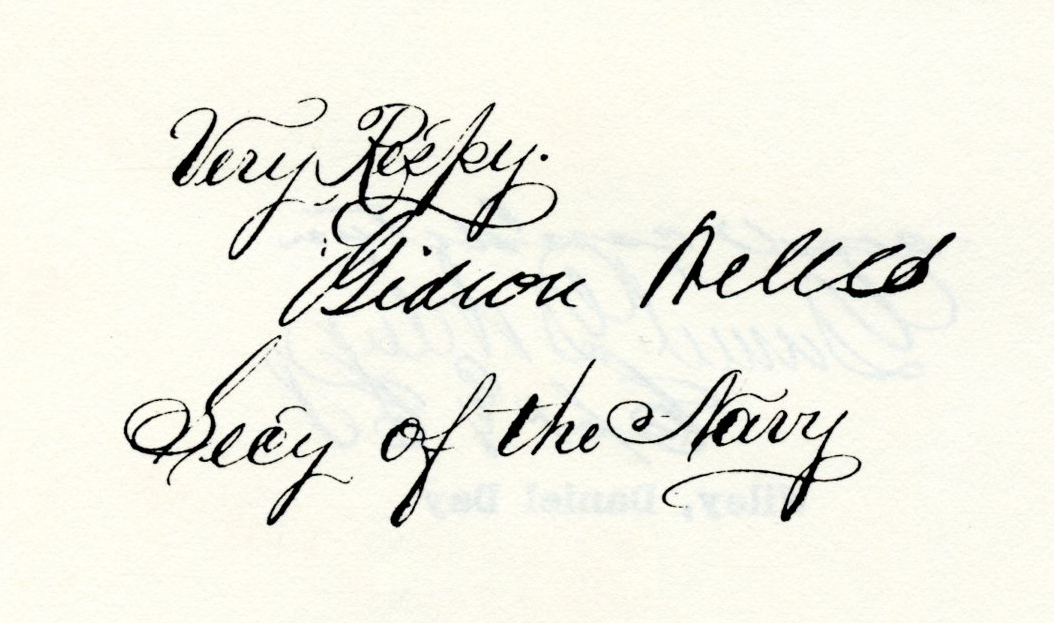 Very Respy.
Gideon Welles
Secy of the Navy